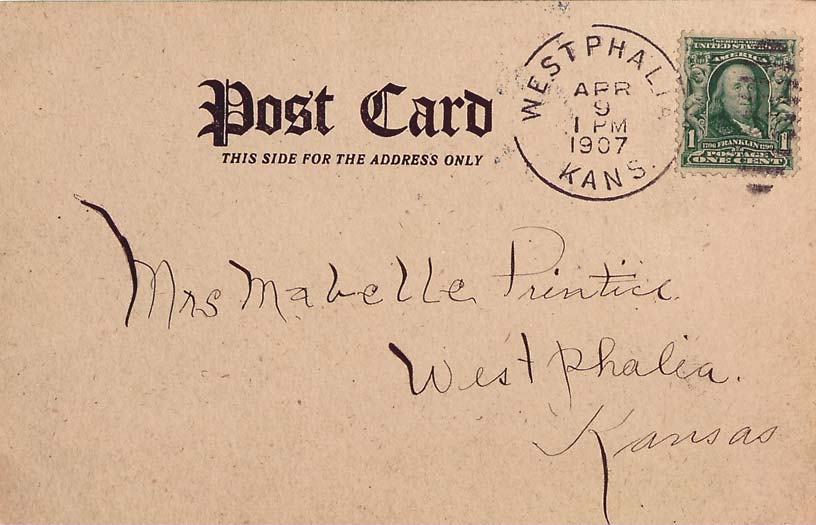 Post Card
THIS SIDE FOR THE ADDRESS ONLY
WESTPHALIA
APR
9
1 PM
1907
KANS.
UNITED STATES
AMERICA
1 FRANKLIN 1
POSTAGE
ONE CENT
Mrs Mabelle Printice.
Westphalia.
Kansas